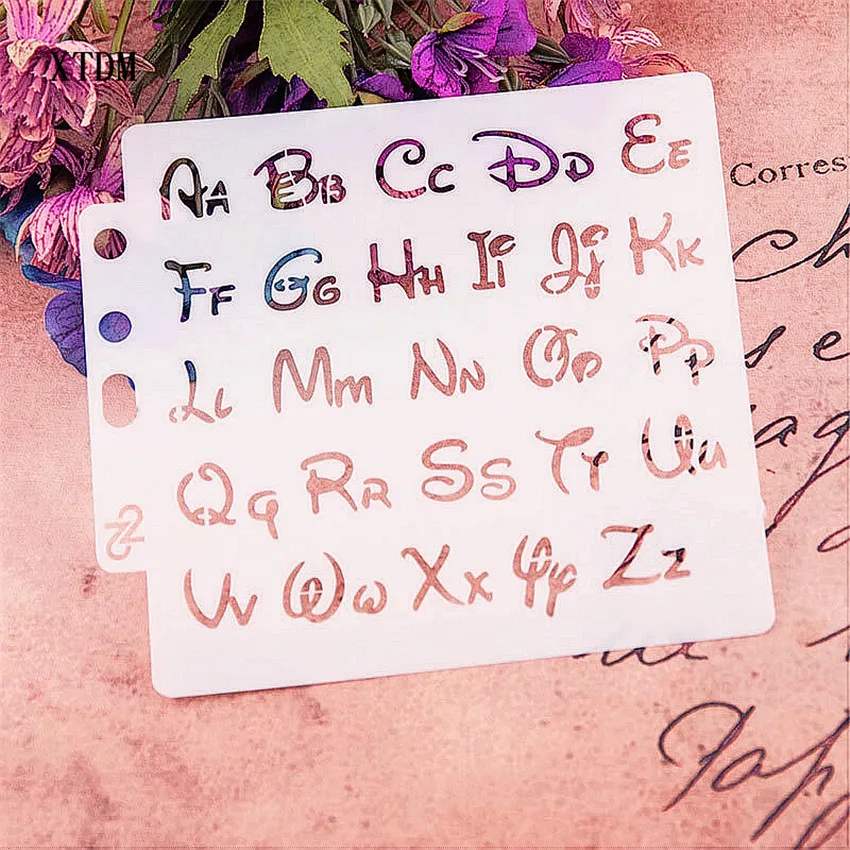 XTDM
Aa Bb Cc Dd Ee
Ff Gg Hh Ii Jj Kk
Ll Mm Nn Oo Pp
Qq Rr Ss Tt Uu
Vv Ww Xx Yy Zz
Corres